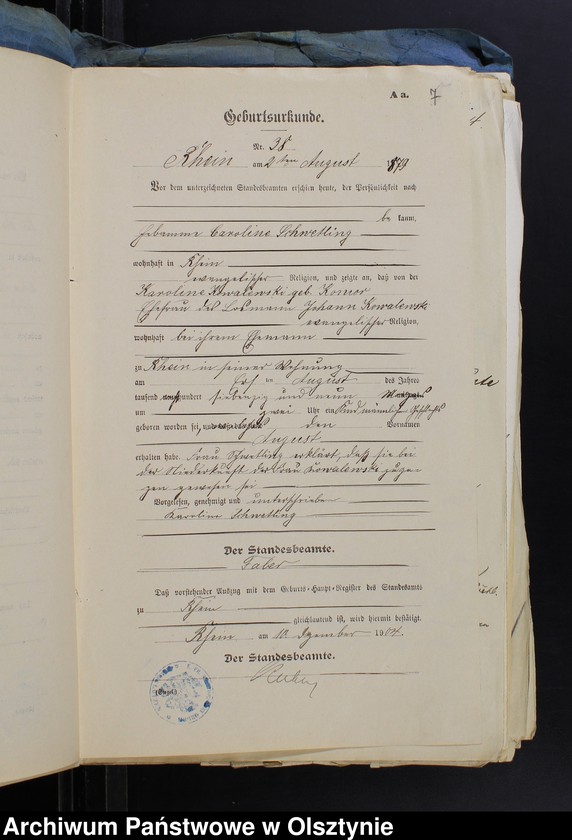 A a. 7
Geburtsurkunde.
Nr. 38
Rhein am 2ten August 1879
Vor dem unterzeichneten Standesbeamten erschien heute, der Persönlichkeit nach
be kannt,
Hebamme Caroline Schwetling
wohnhaft in Rhein
evangelischer Religion, und zeigte an, daß von der
Karoline Kowalewski geb. Komor
Ehefrau des Losmann Johann Kowalewski
evangelischer Religion,
wohnhaft bei ihrem Ehemann
zu Rhein in seiner Wohnung
am ten August des Jahres
tausend hundert siebenzig und neun
um zwei Uhr ein Kind männlichen Geschlechts
geboren worden sei, den Vornamen
August
erhalten habe. Frau Schwetling erklärt, daß sie bei
der Niederkunft der Frau Kowalewski zuge-
gen gewesen sei
Vorgelesen, genehmigt und unterschrieben
Karoline Schwetling
Der Standesbeamte.
Faber
Daß vorstehender Auszug mit dem Geburts-Haupt-Register des Standesamts
zu Rhein
gleichlautend ist, wird hiermit bestätigt.
Rhein am 10. Dezember 1904.
Der Standesbeamte.
(Siegel.)
Archiwum Państwowe w Olsztynie